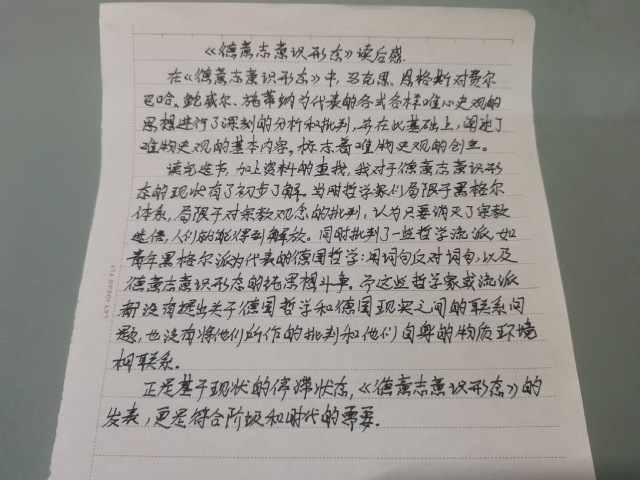 《德意志意识形态》读后感.
在《德意志意识形态》中，马克思、恩格斯对费尔
巴哈、鲍威尔、施蒂纳为代表的各式各样唯心史观的
思想进行了深刻的分析和批判，并在此基础上，阐述了
唯物史观的基本内容。标志着唯物史观的创立。
读完选书，加上资料的查找，我对于德意志意识形
态的现状有了初步了解。当时哲学家们局限于黑格尔
体系，局限于对宗教观念的批判，认为只要消灭了宗教
迷信，人们就能得到解放。同时批判了一些哲学流派，如
青年黑格尔派为代表的德国哲学：用词句反对词句，以及
德意志意识形态的纯思想斗争。而这些哲学家或流派
都没有提出关于德国哲学和德国现实之间的联系问
题，也没有将他们所作的批判和他们自身的物质环境
相联系。
正是基于现状的停滞状态，《德意志意识形态》的
发表，更是符合阶级和时代的需要.
LET IDEAS FLY